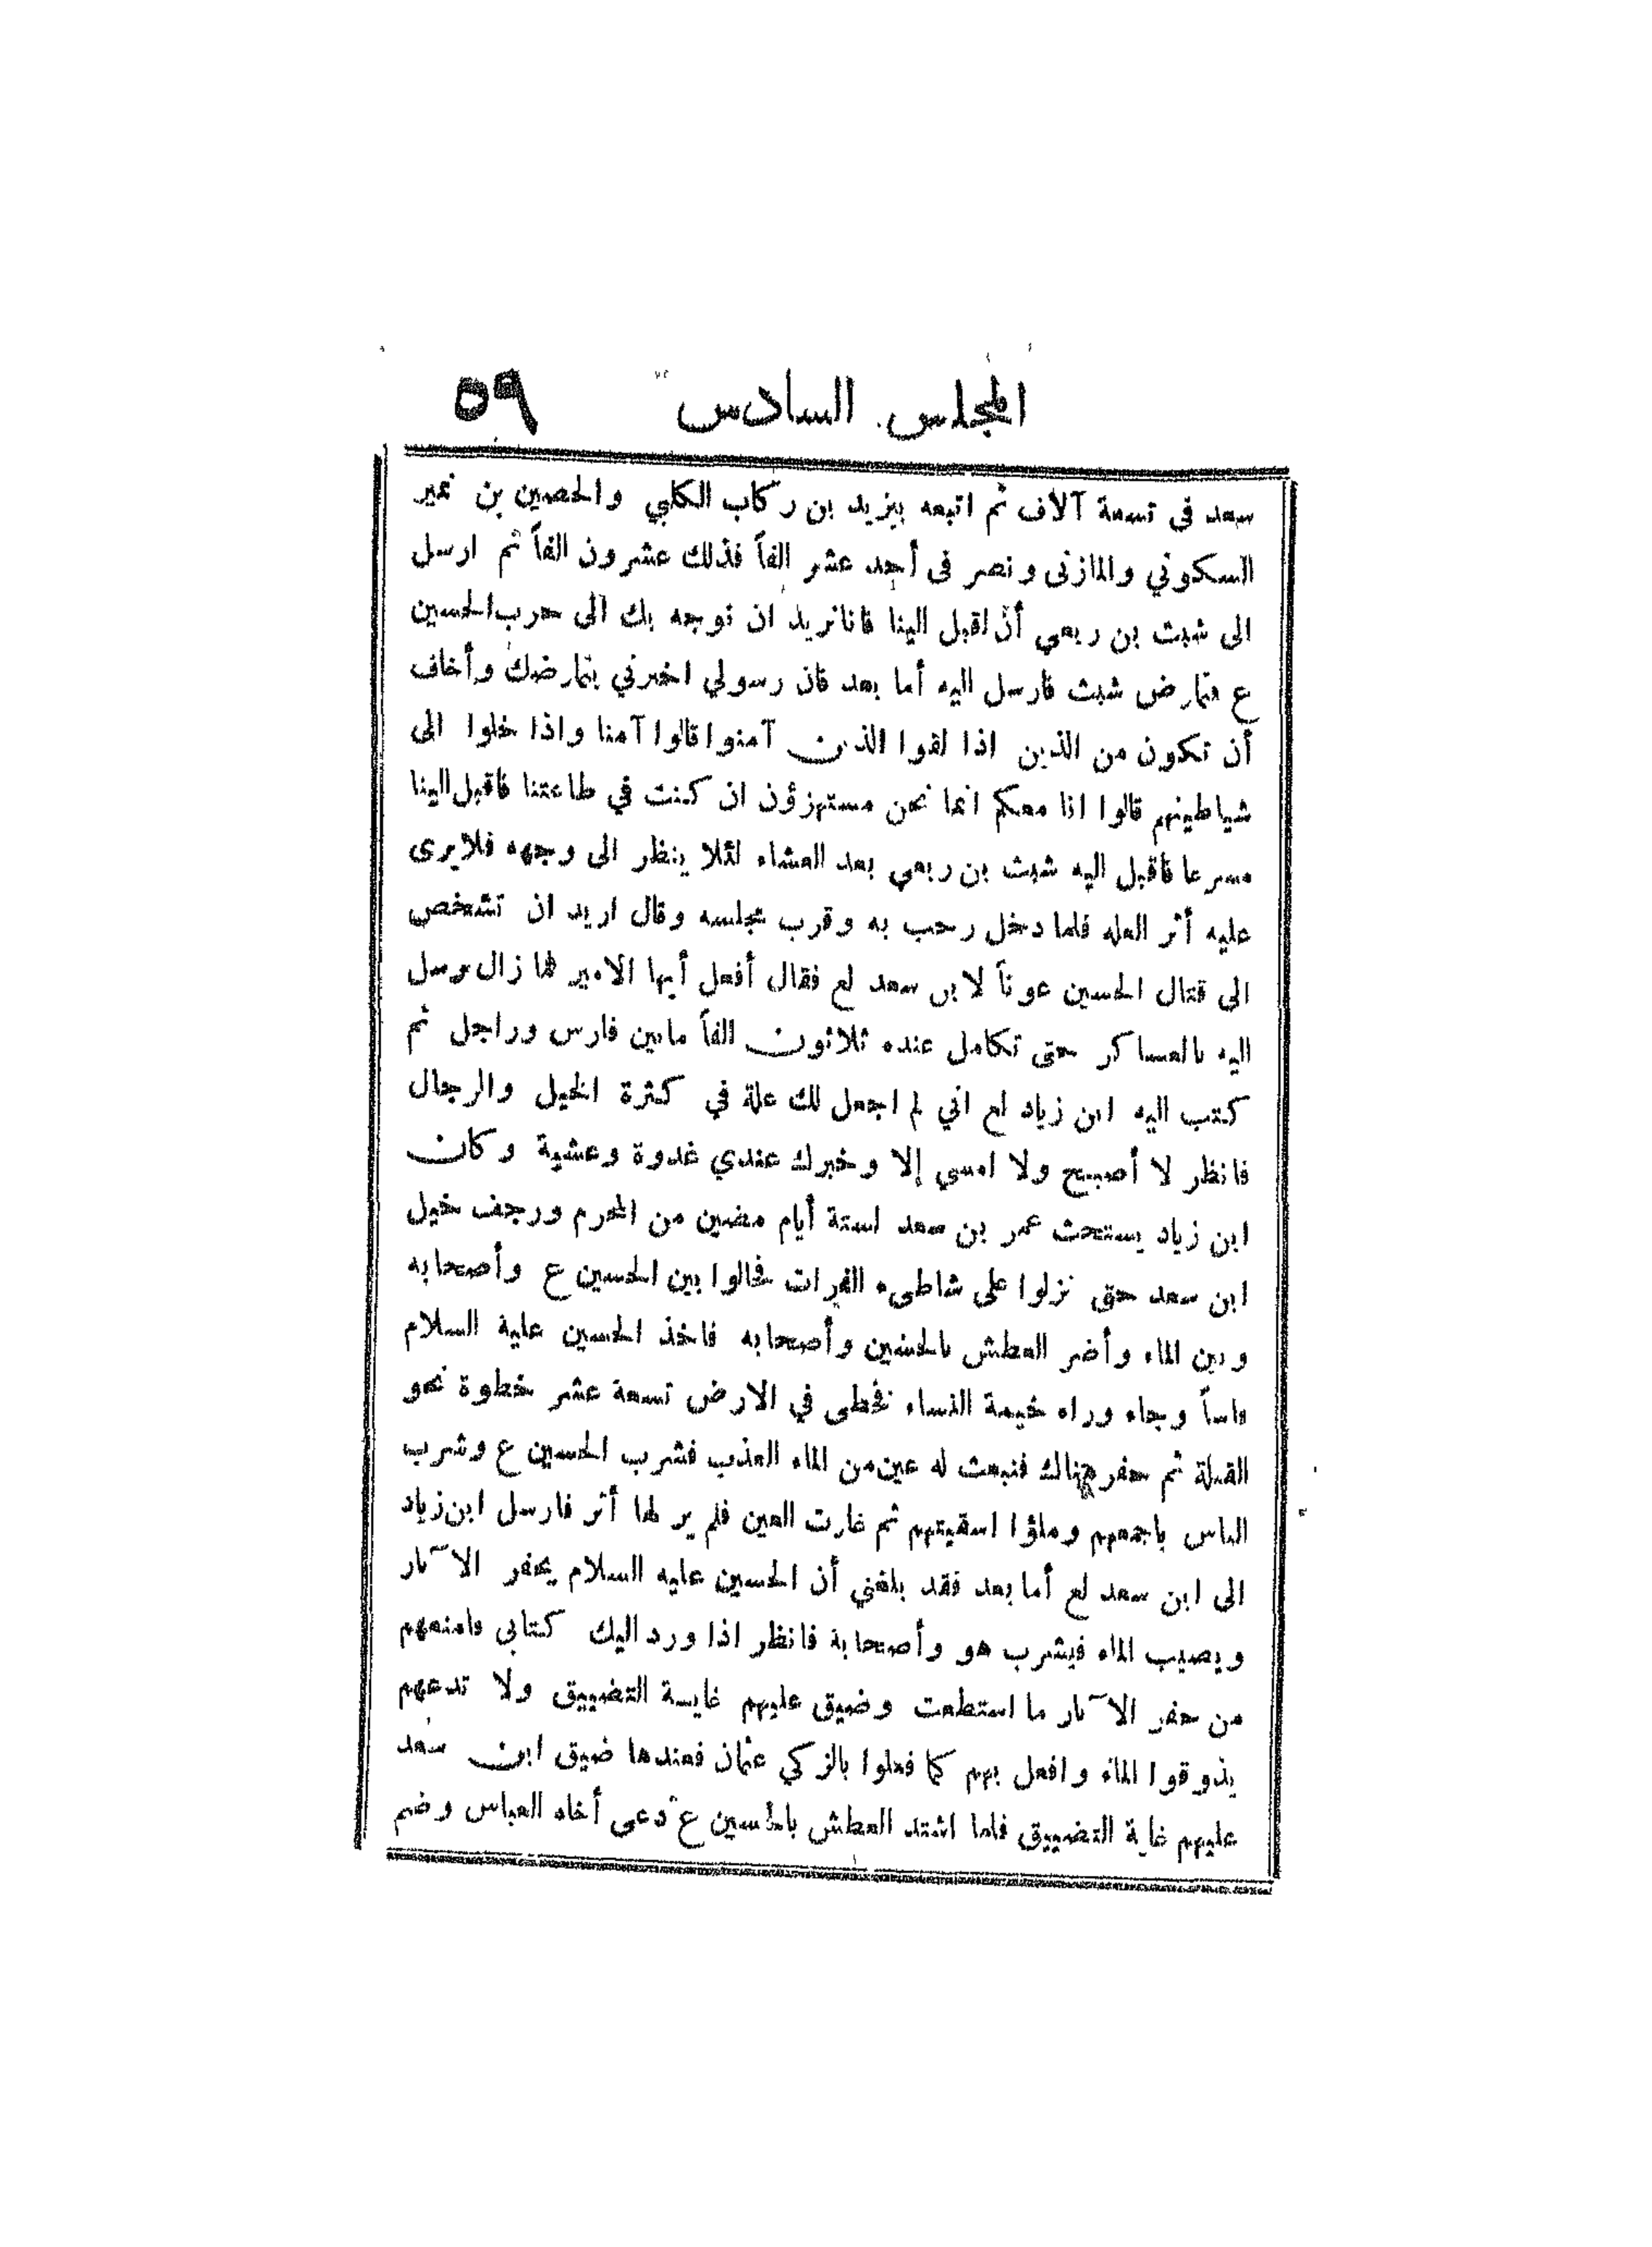 المجلس السادس ٥٩
سعد فى تسعة آلاف ثم اتبعه بيزيد بن ركاب الكلبي والحصين بن نمير
السكوني والمازنى ونصر فى أحد عشر الفاً فذلك عشرون الفاً ثم ارسل
الى شبث بن ربعي أن اقبل الينا فانا نريد ان نوجه بك الى حرب الحسين
ع فتمارض شبث فارسل اليه أما بعد فان رسولي اخبرني بتمارضك وأخاف
أن تكون من الذين اذا لقوا الذين آمنوا قالوا آمنا واذا خلوا الى
شياطينهم قالوا انا معكم انما نحن مستهزؤن ان كنت في طاعتنا فاقبل الينا
مسرعا فاقبل اليه شبث بن ربعي بعد العشاء لئلا ينظر الى وجهه فلا يرى
عليه أثر العله فلما دخل رحب به وقرب مجلسه وقال اريد ان تشخص
الى قتال الحسين عوناً لابن سعد لع فقال أفعل أيها الامير فما زال يرسل
اليه بالعساكر حتى تكامل عنده ثلاثون الفاً ما بين فارس وراجل ثم
كتب اليه ابن زياد لع اني لم اجعل لك علة في كثرة الخيل والرجال
فانظر لا أصبح ولا امسي إلا وخبرك عندي غدوة وعشية وكان
ابن زياد يستحث عمر بن سعد لستة أيام مضين من المحرم ورجف خيل
ابن سعد حتى نزلوا على شاطىء الفرات فحالوا بين الحسين ع وأصحابه
وبين الماء وأضر العطش بالحسين وأصحابه فاخذ الحسين علية السلام
فاساً وجاء وراء خيمة النساء فخطى في الارض تسعة عشر خطوة نحو
القبلة ثم حفر هناك فنبعث له عين من الماء العذب فشرب الحسين ع وشرب
الناس باجمعهم وملؤا اسقيتهم ثم غارت العين فلم ير لها أثر فارسل ابن زياد
الى ابن سعد لع أما بعد فقد بلغني أن الحسين عليه السلام يحفر الآبار
ويصيب الماء فيشرب هو وأصحابة فانظر اذا ورد اليك كتابي فامنعهم
من حفر الآبار ما استطعت وضيق عليهم غاية التضييق ولا تدعهم
يذوقوا الماء وافعل بهم كما فعلوا بالزكي عثمان فعندها ضيق ابن سعد
عليهم غاية التضييق فلما اشتد العطش بالحسين ع دعى أخاه العباس وضم